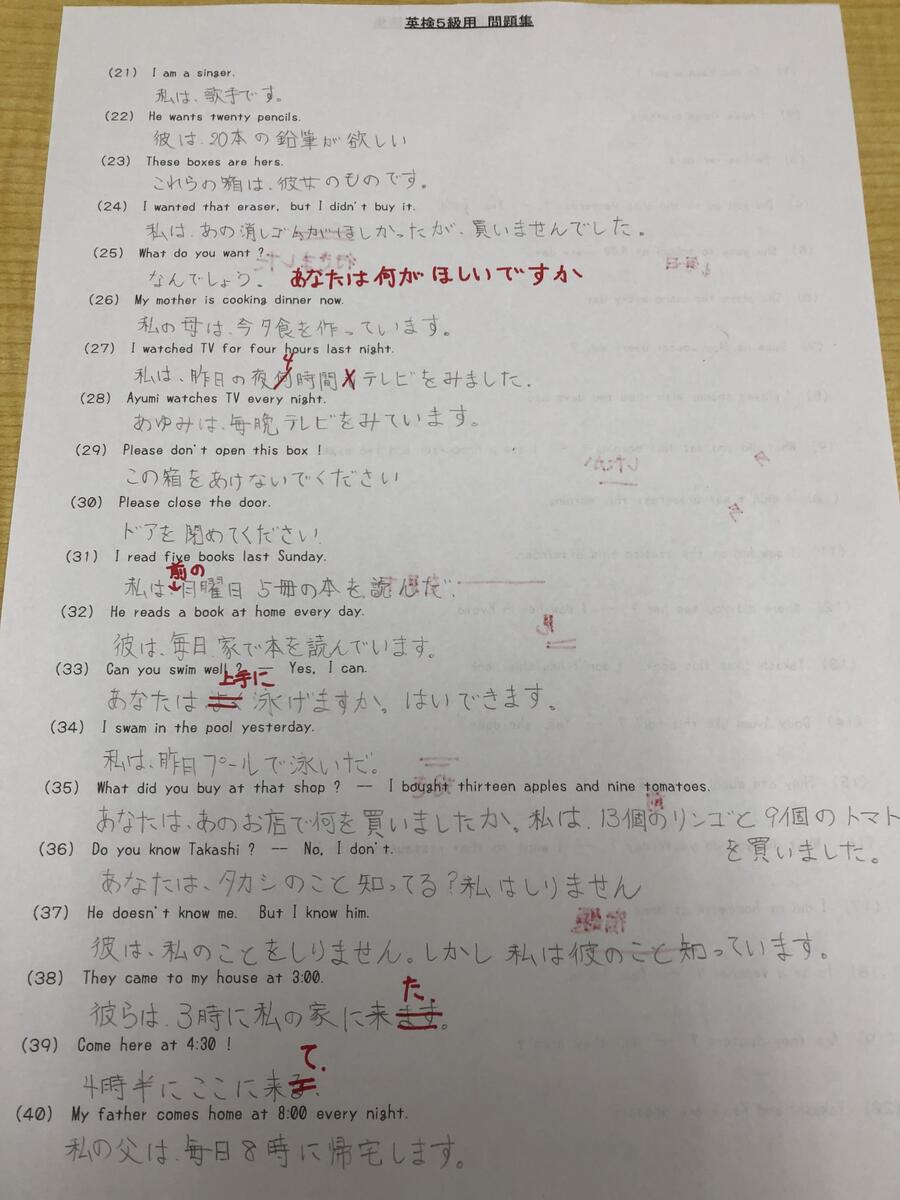 英検5級用 問題集
(21) I am a singer.
私は、歌手です。
(22) He wants twenty pencils.
彼は、20本の鉛筆が欲しい
(23) These boxes are hers.
これらの箱は、彼女のものです。
(24) I wanted that eraser, but I didn't buy it.
私は、あの消しゴムがほしかったが、買いませんでした。
(25) What do you want ?
なんでしょう。 あなたは何がほしいですか
(26) My mother is cooking dinner now.
私の母は、今夕食を作っています。
(27) I watched TV for four hours last night.
4
私は、昨日の夜何時間 テレビをみました.
(28) Ayumi watches TV every night.
あゆみは、毎晩テレビをみています。
(29) Please don't open this box !
この箱をあけないでください
(30) Please close the door.
ドアを閉めてください.
(31) I read five books last Sunday.
前の
私は、日曜日 5冊の本を読んだ.
(32) He reads a book at home every day.
彼は、毎日 家で本を読んでいます。
(33) Can you swim well ? — Yes, I can.
上手に
あなたは よく 泳げますか。はいできます。
(34) I swam in the pool yesterday.
私は、昨日プールで泳いだ。
(35) What did you buy at that shop ? — I bought thirteen apples and nine tomatoes.
あなたは、あのお店で何を買いましたか。私は、13個のリンゴと9個のトマト
を買いました。
(36) Do you know Takashi ? -- No, I don't.
あなたは、タカシのこと知ってる?私はしりません
(37) He doesn't know me. But I know him.
彼は、私のことをしりません。しかし 私は彼のこと知っています。
(38) They came to my house at 3:00.
た.
彼らは、3時に私の家に来ます。
(39) Come here at 4:30 !
て.
4時半にここに来る.
(40) My father comes home at 8:00 every night.
私の父は、毎日8時に帰宅します。